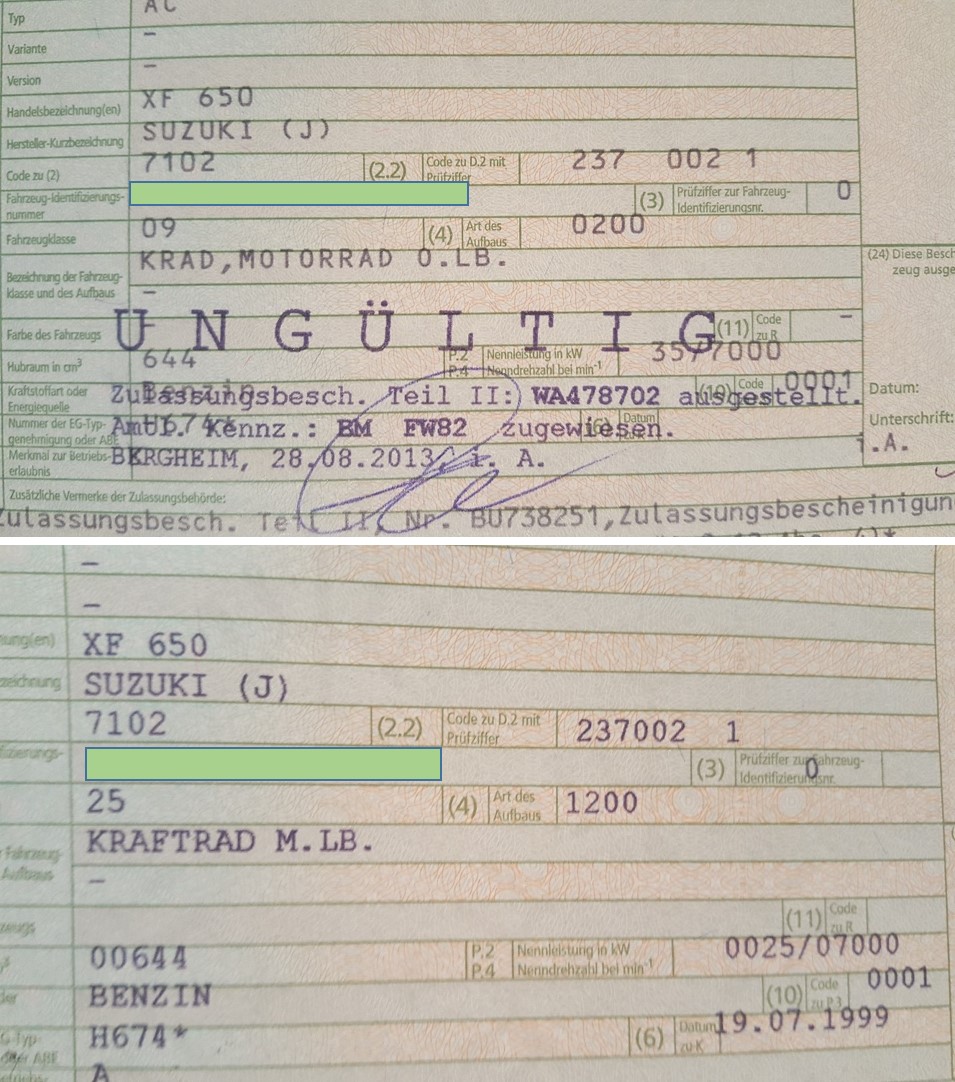 Typ AC
Variante –
Version –
Handelsbezeichnung(en) XF 650
Hersteller-Kurzbezeichnung SUZUKI (J)
Code zu (2) 7102 (2.2) Code zu D.2 mit Prüfziffer 237 002 1
Fahrzeug-Identifizierungs-
nummer (3) Prüfziffer zur Fahrzeug-
Identifizierungsnr. 0
Fahrzeugklasse 09 (4) Art des Aufbaus 0200
KRAD,MOTORRAD O.LB.
(24) Diese Besch
zeug ausge
Bezeichnung der Fahrzeug-
klasse und des Aufbaus –
Farbe des Fahrzeugs (11) Code zu R –
UNGÜLTIG
Hubraum in cm³ 644 P.2 Nennleistung in kW
P.4 Nenndrehzahl bei min⁻¹ 35/7000
Kraftstoffart oder
Energiequelle Benzin (10) Code 0001
Zulassungsbesch. Teil II: WA478702 ausgestellt.
Datum:
Nummer der EG-Typ-
genehmigung oder ABE (6) Datum
Amtl. Kennz.: BM FW82 zugewiesen.
Unterschrift:
i.A.
Merkmal zur Betriebs-
erlaubnis
BERGHEIM, 28.08.2013, i. A.
Zusätzliche Vermerke der Zulassungsbehörde:
Zulassungsbesch. Teil II, Nr. BU738251,Zulassungsbescheinigun
–
–
ung(en) XF 650
zeichnung SUZUKI (J)
7102 (2.2) Code zu D.2 mit Prüfziffer 237002 1
fizierungs- (3) Prüfziffer zur Fahrzeug-
Identifizierungsnr. 0
25 (4) Art des Aufbaus 1200
KRAFTRAD M.LB.
Fahrzeug-
Aufbaus –
zeugs (11) Code zu R
00644 P.2 Nennleistung in kW
P.4 Nenndrehzahl bei min⁻¹ 0025/07000
der BENZIN (10) Code zu P.3 0001
G-Typ-
oder ABE H674* (6) Datum zu K 19.07.1999
A